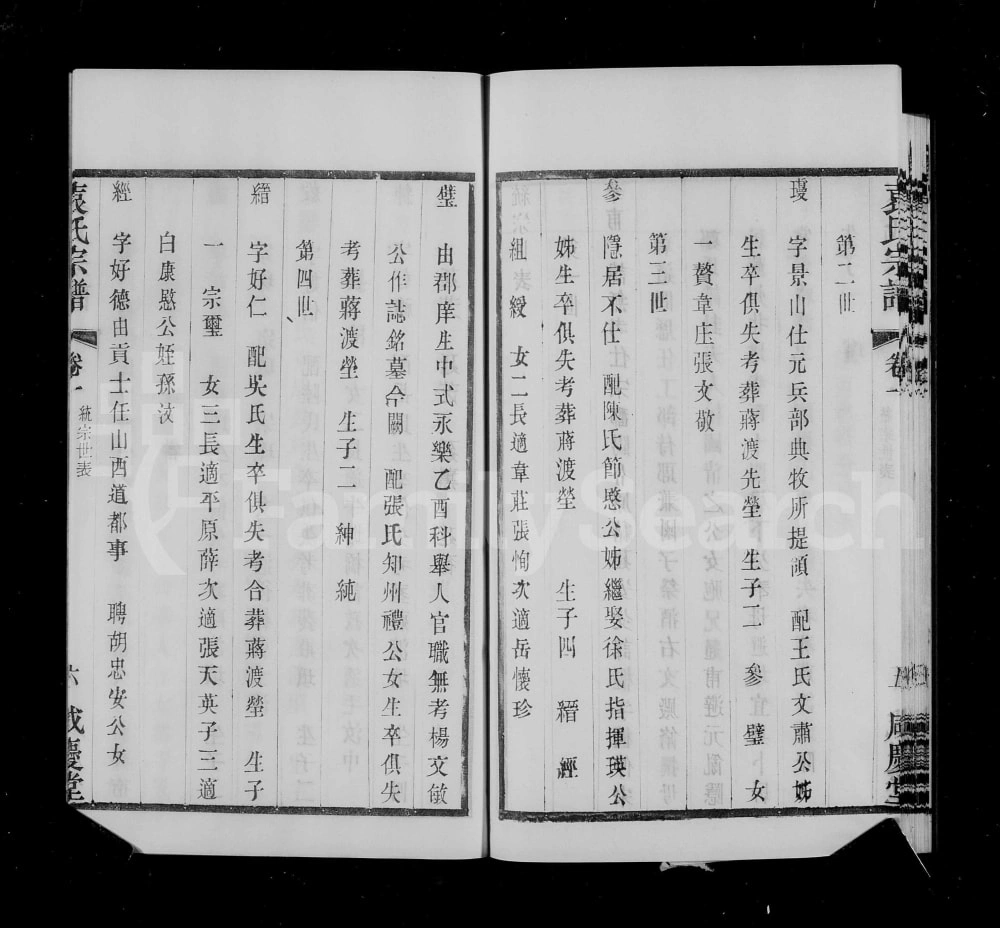 第二世
瓊 字景山仕元兵部典牧所提領 配王氏文肅公姊
生卒俱失考葬蔣渡先塋 生子二 參 璧 女
一贅韋庄張文敬
第三世
參 隱居不仕 配陳氏節愍公姊繼娶徐氏指揮瑛公
姊生卒俱失考葬蔣渡塋 生子四 縉 經
組 綬 女二長適韋莊張恂次適岳懷珍
袁氏宗譜 卷一 五 咸慶堂
璧 由郡庠生中式永樂乙酉科舉人官職無考楊文敏
公作誌銘墓合闕 配張氏知州禮公女生卒俱失
考葬蔣渡塋 生子二 紳 純
第四世
縉 字好仁 配吳氏生卒俱失考合葬蔣渡塋 生子
一 宗璽 女三長適平原薛次適張天英子三適
白康愍公姪孫汶
經 字好德由貢士任山西道都事 聘胡忠安公女
袁氏宗譜 卷一 統宗世表 六 咸慶堂
FamilySearch